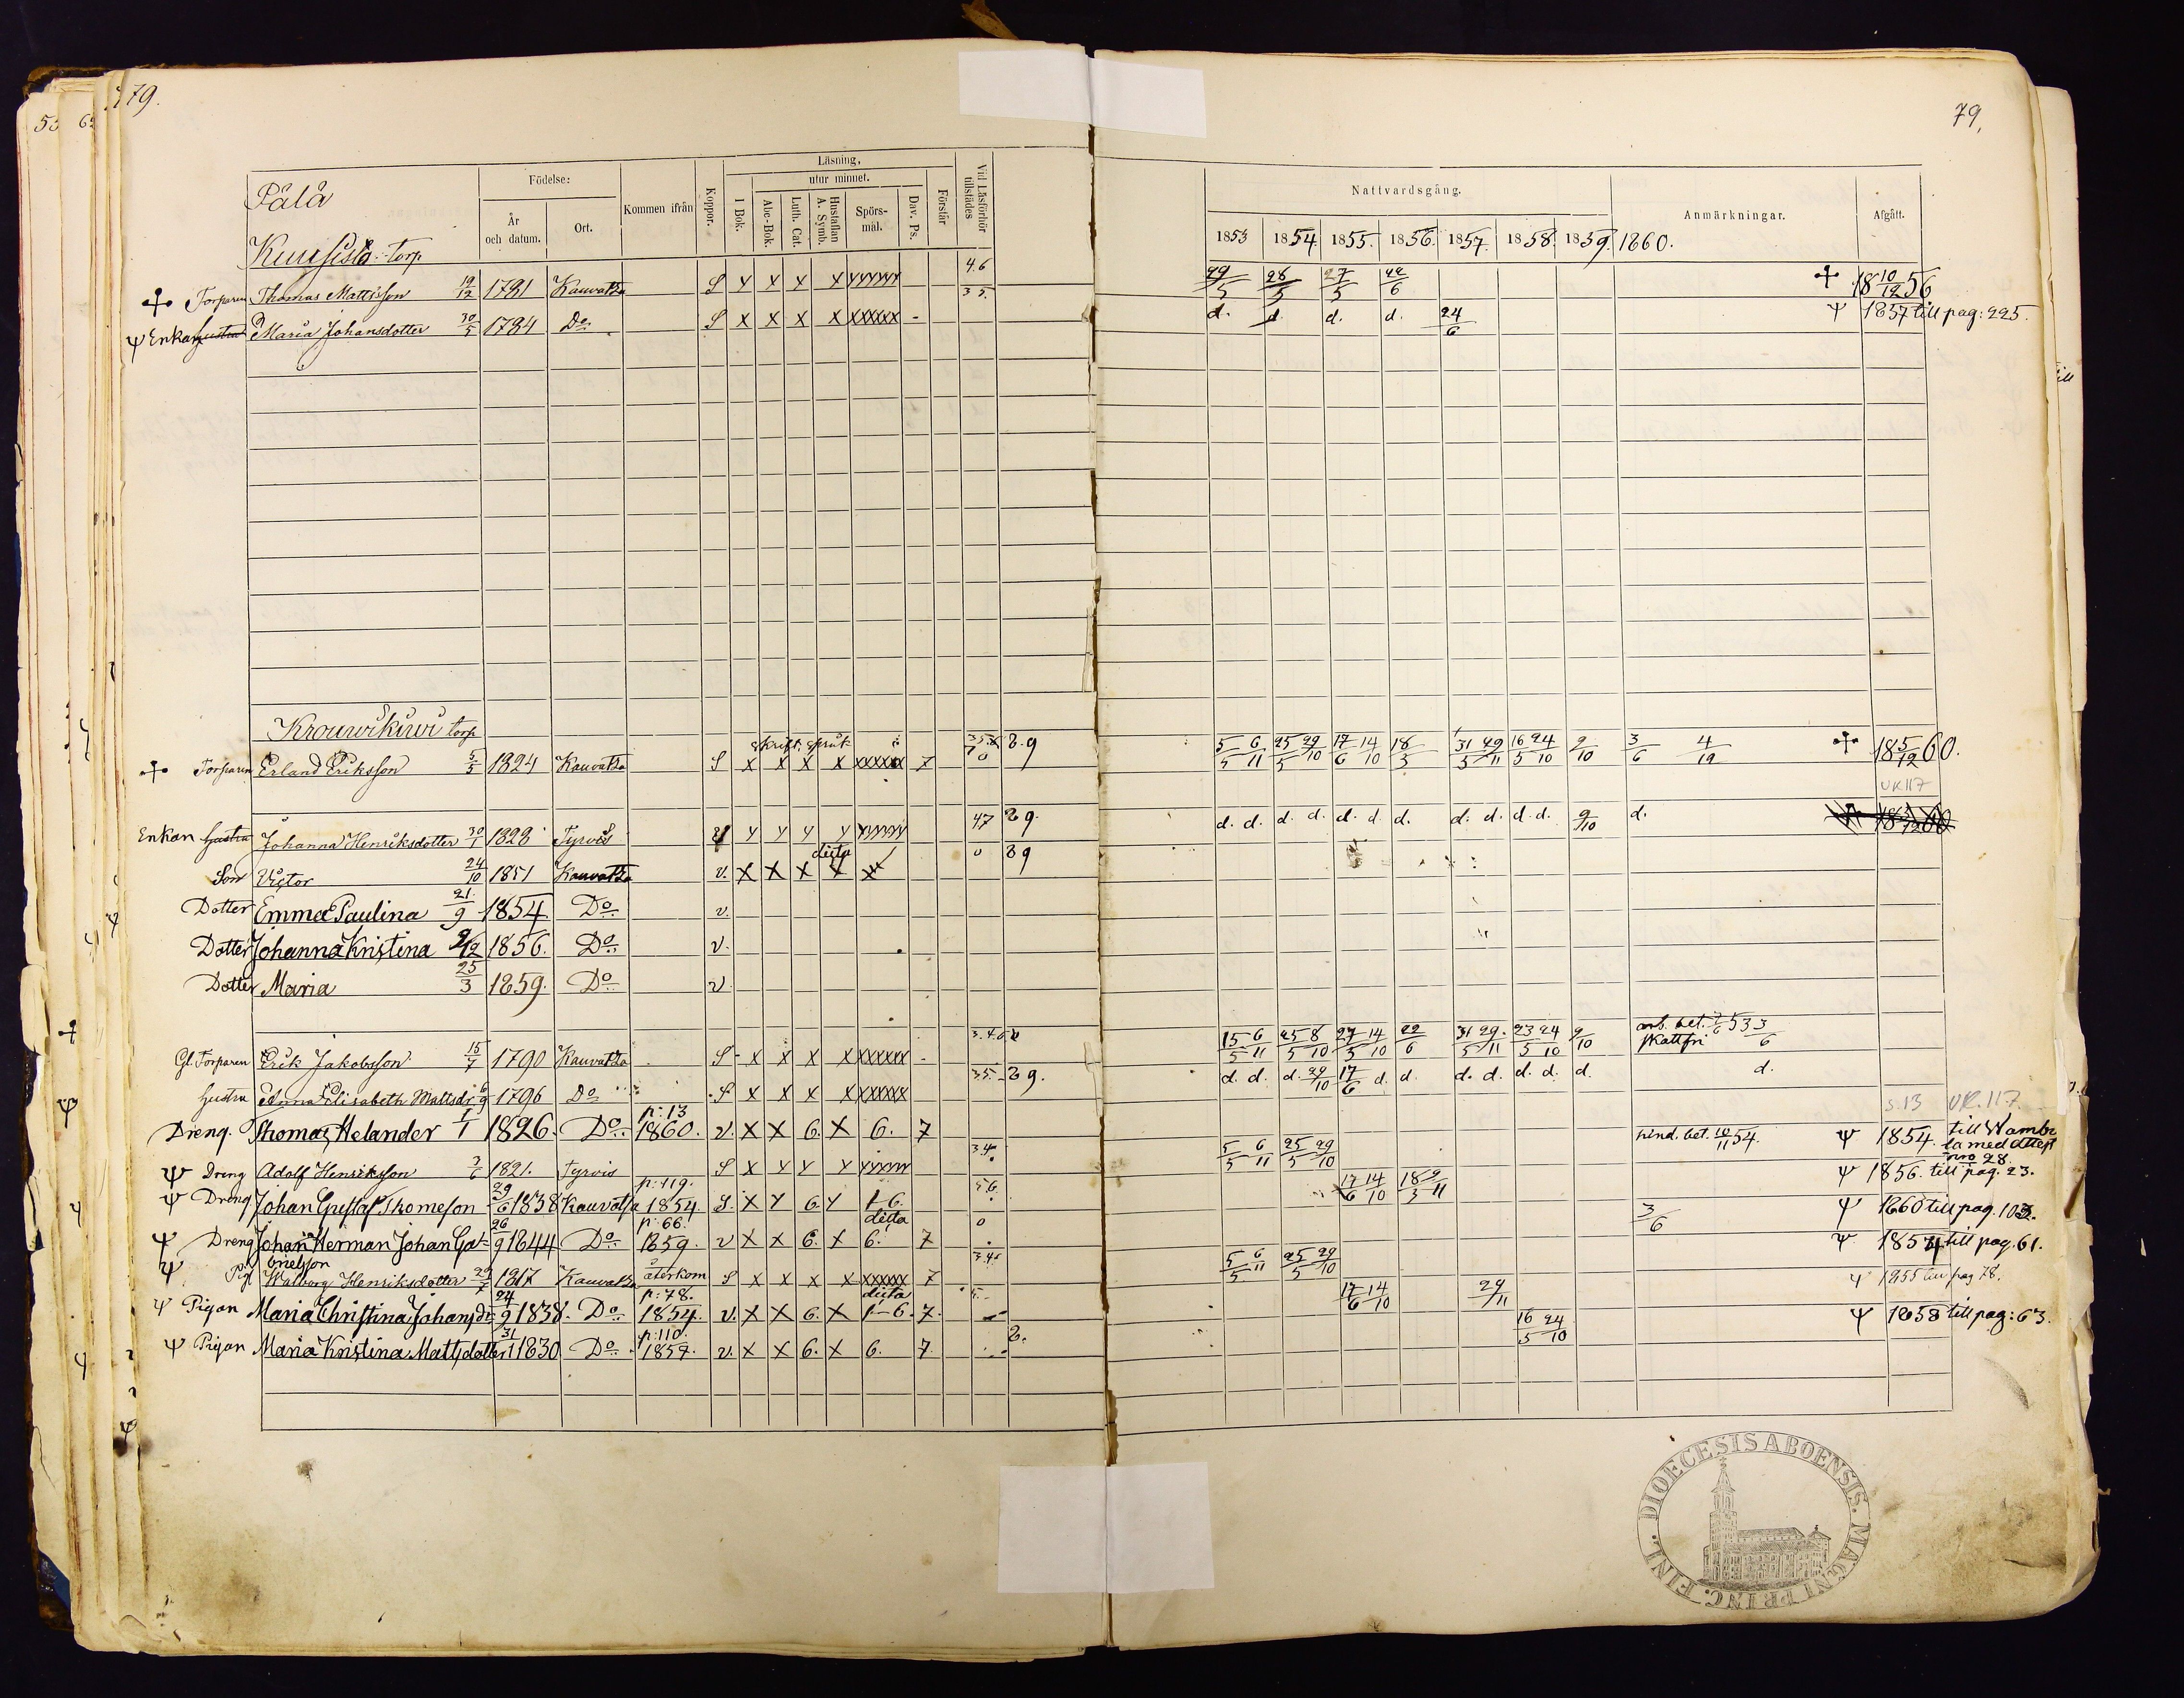 79.
79.
53 62
Pälä
Födelse:
År och datum.
Ort.
Kommen ifrån
Koppor.
Läsning,
utur minnet.
I Bok.
Abc-Bok.
Luth. Cat.
Hustaflan A. Symb.
Spörs-mål.
Dav. Ps.
Förstår
Vid Läsförhör tillstädes
Nattvardsgång.
1853 1854. 1855. 1856. 1857. 1858. 1859. 1860.
Anmärkningar.
Afgått.
torp
Torparen Thomas Mattsson 19/12 1781 Kauvatsa S Y X X X YYYYYY 4.6 29/5 28/5 27/5 22/6 18 10/12 56
Enkan hustru Maria Johansdotter 30/5 1784 Do S X X X X XXXXXX - 35. d. d. d. d. 24/6 Ψ 1857 till pag: 225.
Krouvikivi torp
skrift. språk
Torparen Erland Eriksson 5/5 1824 Kauvatsa S X X X X XXXXXX 7 2.9 5/5 6/11 25/5 29/10 17/6 14/10 18/3 31/5 29/11 16/5 24/10 9/10 3/6 4/19 18 5/12 60.
UK 117
Enkan hustru Johanna Henriksdotter 30/1 1828 Tyrvis Y Y Y Y YYYYYY 47 29. d. d. d. d. d. d. d. d. d. d. d. 9/10 d.
dito
Son Victor 24/10 1851 Kauvatsa v. X X X X X 0 39
Dotter Emma Paulina 21/9 1854 Do v.
Dotter Johanna Kristina 9/12 1856. Do v.
Dotter Maria 25/3 1859. Do v.
Gl. Torparen Erik Jakobsson 15/7 1790 Kauvatsa S X X X X XXXXXX - 3.4.6. 15/5 6/11 25/5 8/10 27/5 14/10 22/6 31/5 29/11 23/5 24/10 9/10 skattfri 3/6
hustru Anna Elisabeth Mattsdr 6/9 1796 Do S X X X X XXXXXX 35. 29. d. d. d. 29/10 17/6 d. d. d. d. d. d. d. d.
S. 13 UK. 117.
Dreng. Thomas Helander 1/1 1826. Do p: 13 1860. v. X X 6. X 6. 7
Ψ Dreng Adolf Henriksson 2/6 1821. Tyrvis S X Y Y Y YYYYYY 34. 5/5 6/11 25/5 29/10 hind. bet. 10/11 54. Ψ 1854. till Wambula med attest nro 28.
Ψ Dreng Johan Gustaf Thomeson 29/6 1838 Kauvatsa p: 119. 1854 S. X Y 6 Y 1-6 5.6. 17/6 14/10 18/3 9/11 Ψ 1856. till pag. 23.
Ψ Dreng Johan Herman Johan Gabrielsson 26/9 1844 Do p: 66. 1859. v X X 6. X dito 6. 7 0 3/6 Ψ 1860 till pag. 103.
Ψ Pig. Walborg Henriksdotter 29/7 1817 Kauvatsa återkom S X X X X XXXXX 7 3.4. 5/5 6/11 25/5 29/10 Ψ 1854 till pag. 61.
Ψ Pigan Maria Christina Johansdr 24/9 1838. Do p: 78. 1854. v. X X 6. X dito 1-6. 7. 5. 17/6 14/10 29/11 Ψ 1855 till pag 78.
Ψ Pigan Maria Kristina Mattsdotter 31/1 1830 Do p: 110. 1857. v. X X 6. X 6. 7. 2. 16/5 24/10 Ψ 1858 till pag: 63.
DIOECESIS ABOENSIS. MAGNI PRINC. FINL.